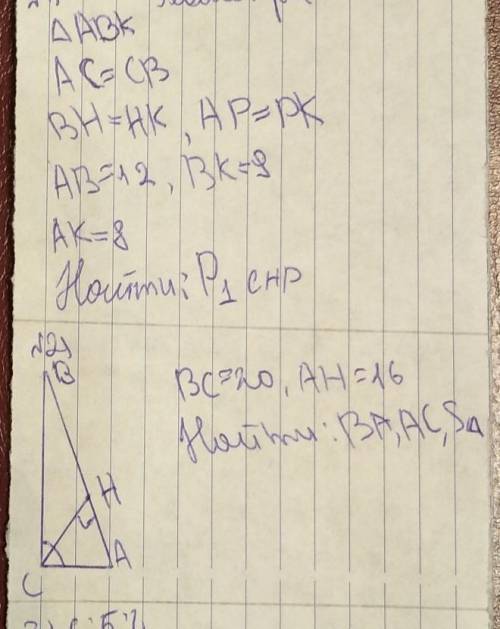 △ABK
AC=CB
BH=HK, AP=PK
AB=12, BK=9
AK=8
Найти: P₁ CHP
№2)
B
BC=20, AH=16
Найти: BA, AC, S△
H
A
C